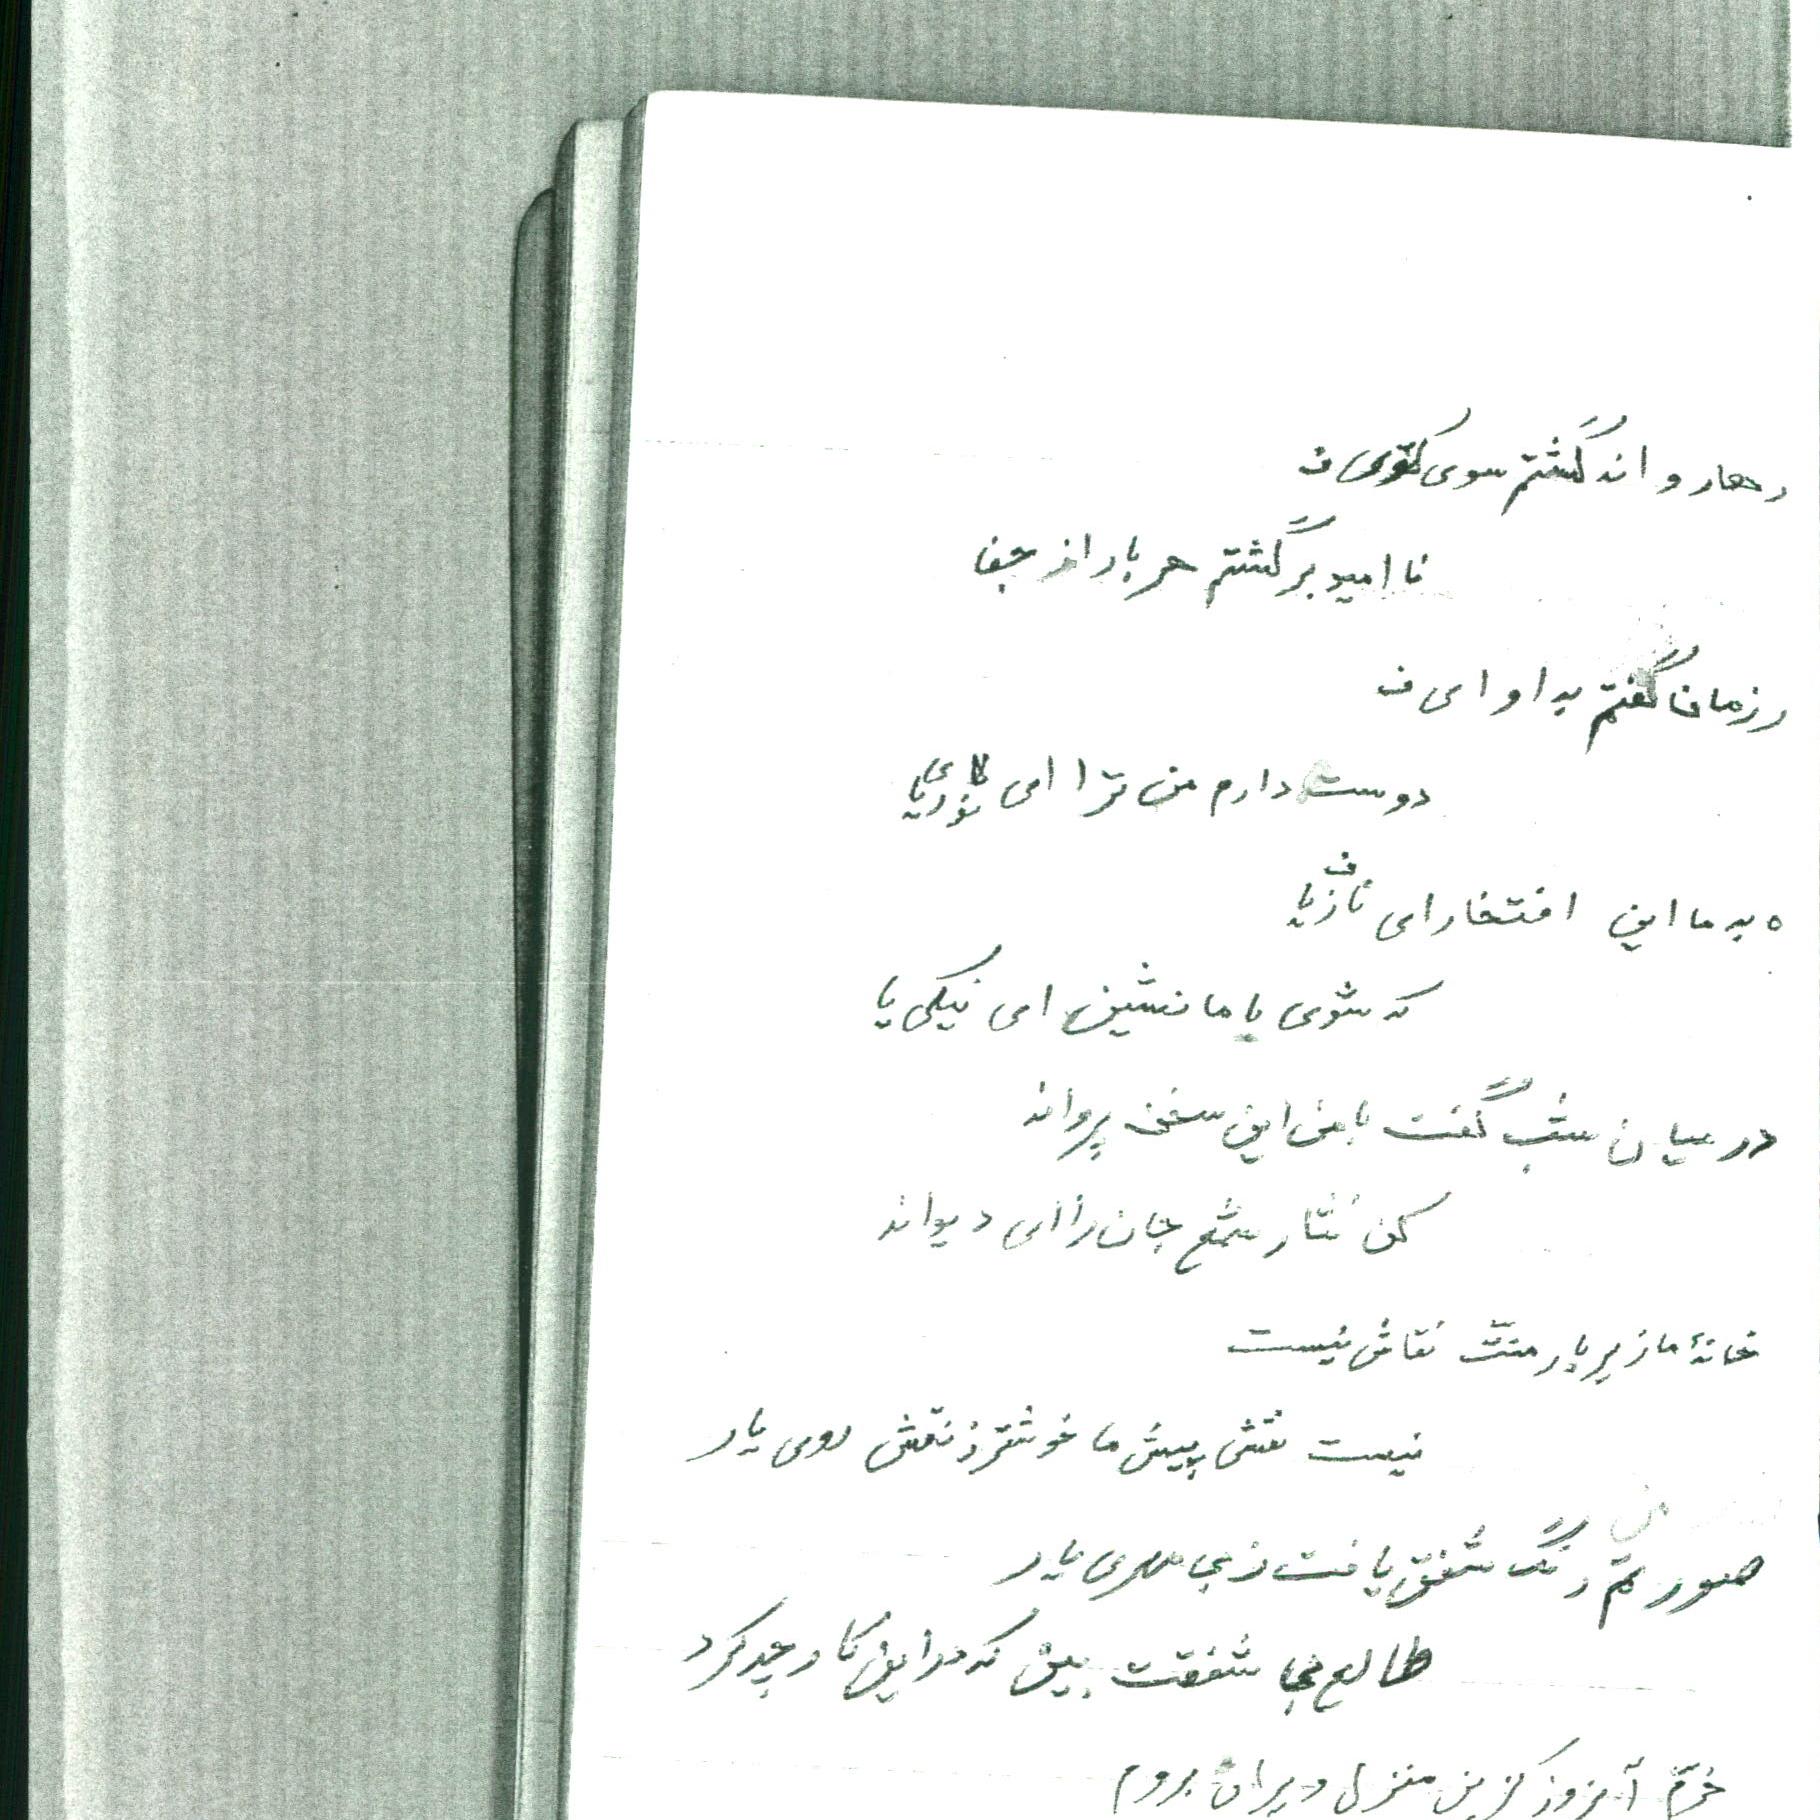 روانه گشتم سوی
نا امید برگشتم هر بار از جفا
گفتم به او ای
دوست دارم من ترا ای
به ما این افتخار ای
که شوی با ما نشین ای نیکی یا
در میان شب گفت با من این سخن پروانه
کن نثار شمع جان را ای دیوانه
خانهٔ ما زیر بار منت نقاش نیست
نیست نقش پیش ما خوشتر ز نقش روی یار
صورتم رنگ شفق یافت ز بی مهری یار
طالع بی شفقت بین که در این کار چه کرد
خرّم آنروز کزین منزل ویران بروم